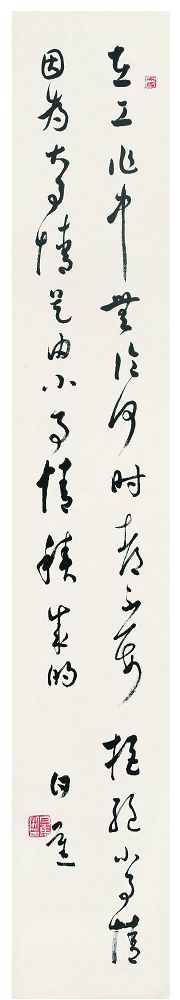 在工作中無论何时都不要拒绝小事情
因为大事情是由小事情積成的